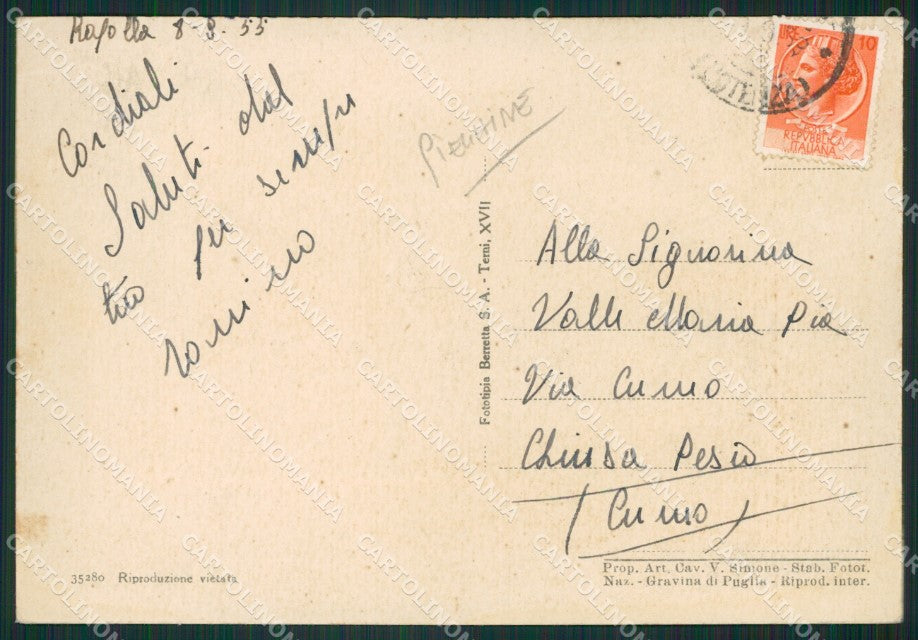 Rapolla 8-8-55
Cordiali
Saluti dal
tuo per sempre
LIRE 10
REPVBBLICA
ITALIANA
Fototipia Berretta S. A. - Terni, XVII
Alla Signorina
Valle Maria Pia
Via Cuneo
Chiusa Pesio
(Cuneo)
35280 Riproduzione vietata
Prop. Art. Cav. V. Simone - Stab. Fotot.
Naz. - Gravina di Puglia - Riprod. inter.
CARTOLINOMANIA